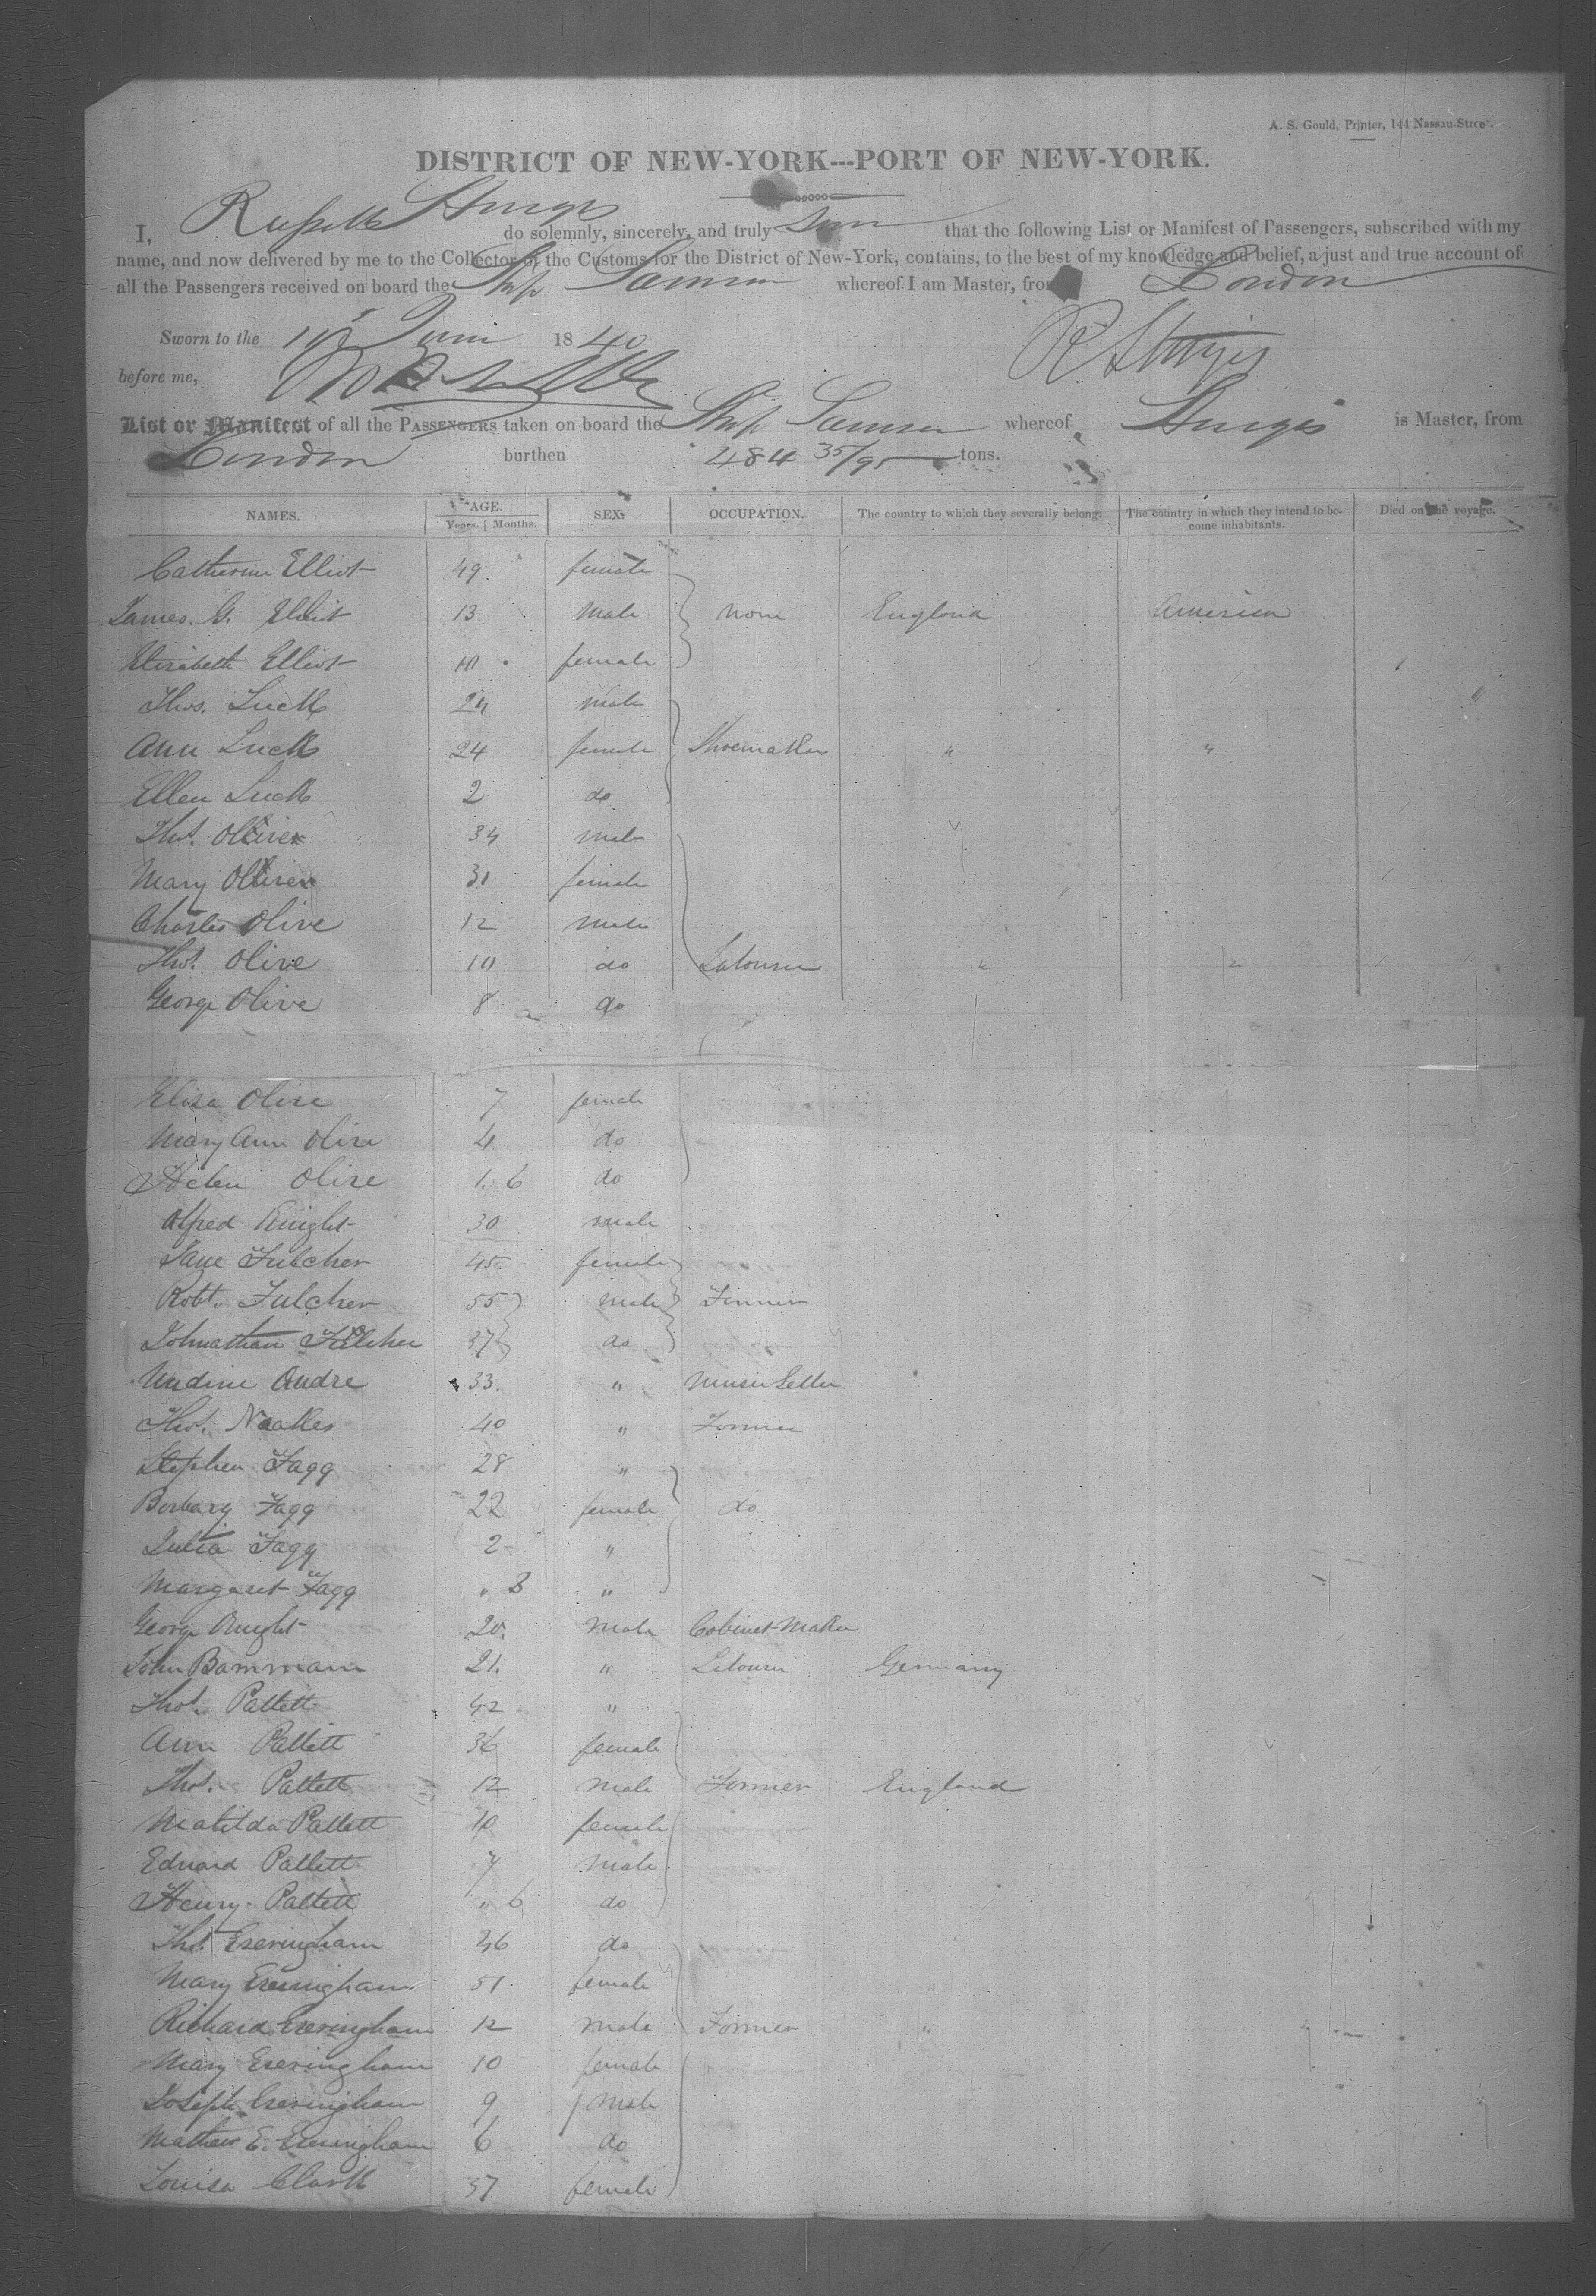 A. S. Gould, Printer, 144 Nassau-Street.
DISTRICT OF NEW-YORK---PORT OF NEW-YORK.
I, Russell Sturgis do solemnly, sincerely, and truly that the following List or Manifest of Passengers, subscribed with my
name, and now delivered by me to the Collector of the Customs for the District of New-York, contains, to the best of my knowledge and belief, a just and true account of
all the Passengers received on board the Ship Samson whereof I am Master, from London
Sworn to the June 1840 R Sturgis
before me,
List or Manifest of all the PASSENGERS taken on board the Ship Samson whereof Sturgis is Master, from
London burthen 484 35/95 tons.
NAMES. AGE. SEX. OCCUPATION. The country to which they severally belong. The country in which they intend to be- Died on the voyage.
Years. | Months. come inhabitants.
Catherine Elliot 49 female
James. G. Elliot 13 male none England America
Elizabeth Elliot 10 female
Thos. Luck 24 male
Ann Luck 24 female Shoemaker " "
Ellen Luck 2 do
Thos. Olive 34 male
Mary Olive 31 female
Charles Olive 12 male
Thos. Olive 10 do Labourer " "
George Olive 8 do
Eliza Olive 7 female
Mary Ann Olive 4 do
Helen Olive 1. 6 do
Alfred Knight 30 male
Jane Fulcher 45 female
Robt. Fulcher 55 male Farmer
Johnathan Fulcher 37 do
Andre 33 " Music Seller
Thos. Noakes 40 " Farmer
Stephen Fagg 28 "
Barbary Fagg 22 female do
Julia Fagg 2 "
Margaret Fagg " 3 "
George Knight 20 male Cabinet-Maker
John Bammann 21 " Labourer Germany
Thos. Pallett 42 "
Ann Pallett 36 female
Thos. Pallett 12 male Farmer England
Matilda Pallett 10 female
Edward Pallett 7 male
Henry Pallett " 6 do
Thos. Everingham 36 do
Mary Everingham 51 female
Richard Everingham 12 male Farmer "
Mary Everingham 10 female
Joseph Everingham 9 male
Mathew E. Everingham 6 do
Louisa Clark 37 female